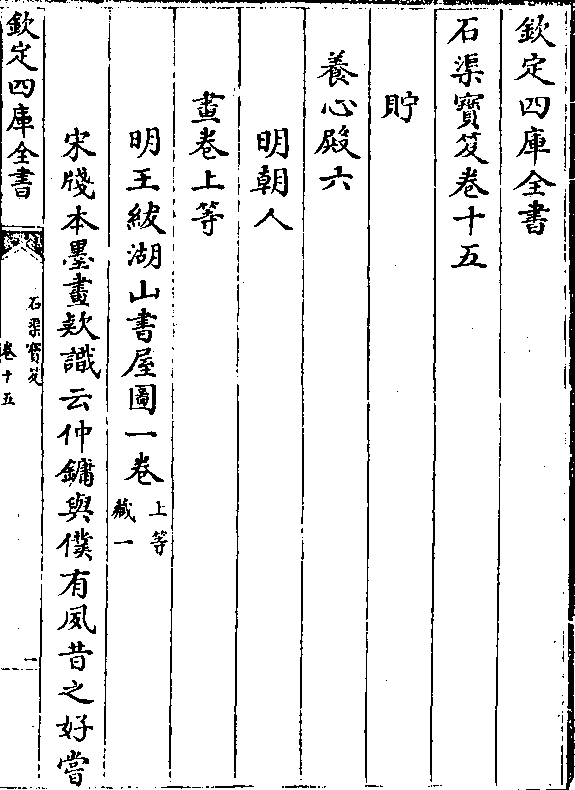 欽定四庫全書
石渠寶笈卷十五
貯
養心殿六
明朝人
畫卷上等
明王紱湖山書屋圖一卷上等藏一
宋牋本墨畫欵識云仲鏞與僕有夙昔之好嘗
欽定四庫全書
石渠寶笈
卷十五
一